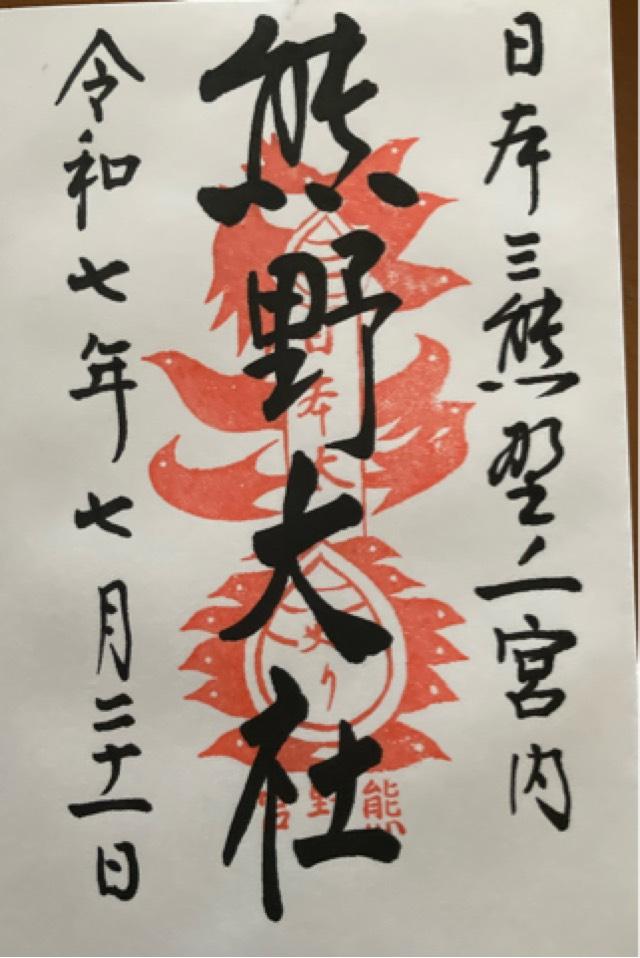 日本三熊野之一宮内
熊野大社
令和七年七月二十一日